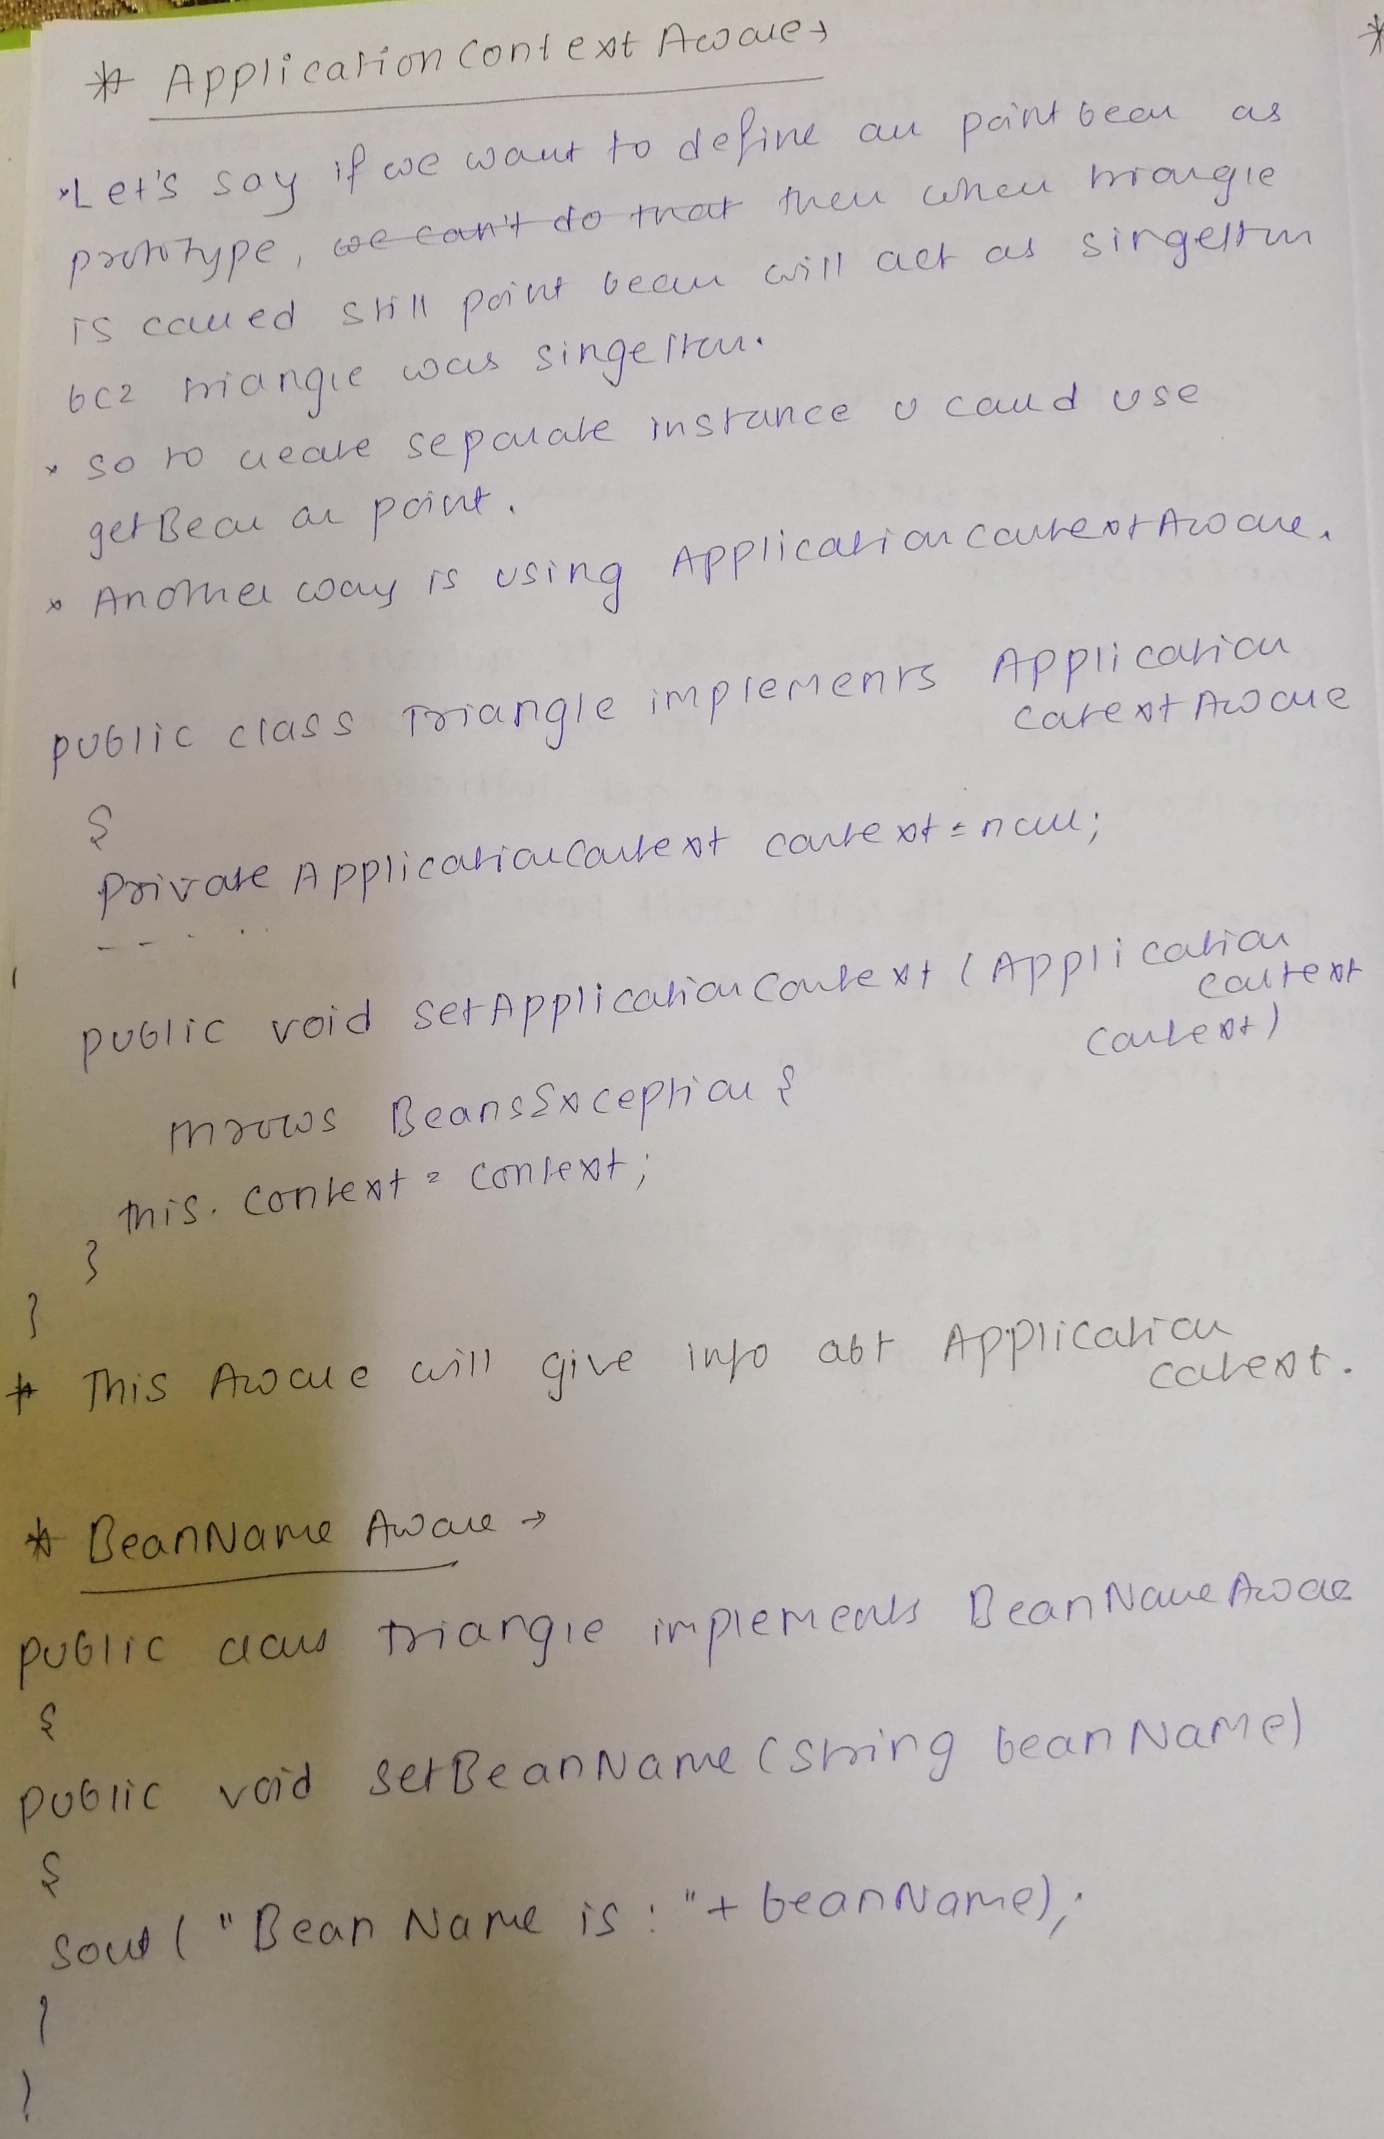 * ApplicationContext Aware →
*Let's say if we want to define an point bean as
prototype, we can't do that then when triangle
is called still point bean will act as singelton
bcz triangle was singelton.
* so to create separate instance u could use
getBean on point.
* Another way is using ApplicationContextAware.
public class Triangle implements Application
ContextAware
{
private ApplicationContext context = null;
- - - - -
public void setApplicationContext (Application
Context
Context)
throws BeansException {
this. Context = Context;
}
}
* This Aware will give info abt Application
Context.
* BeanName Aware →
public class triangle implements BeanNameAware
{
public void setBeanName (string beanName)
{
sout ( " Bean Name is : " + beanName);
}
}